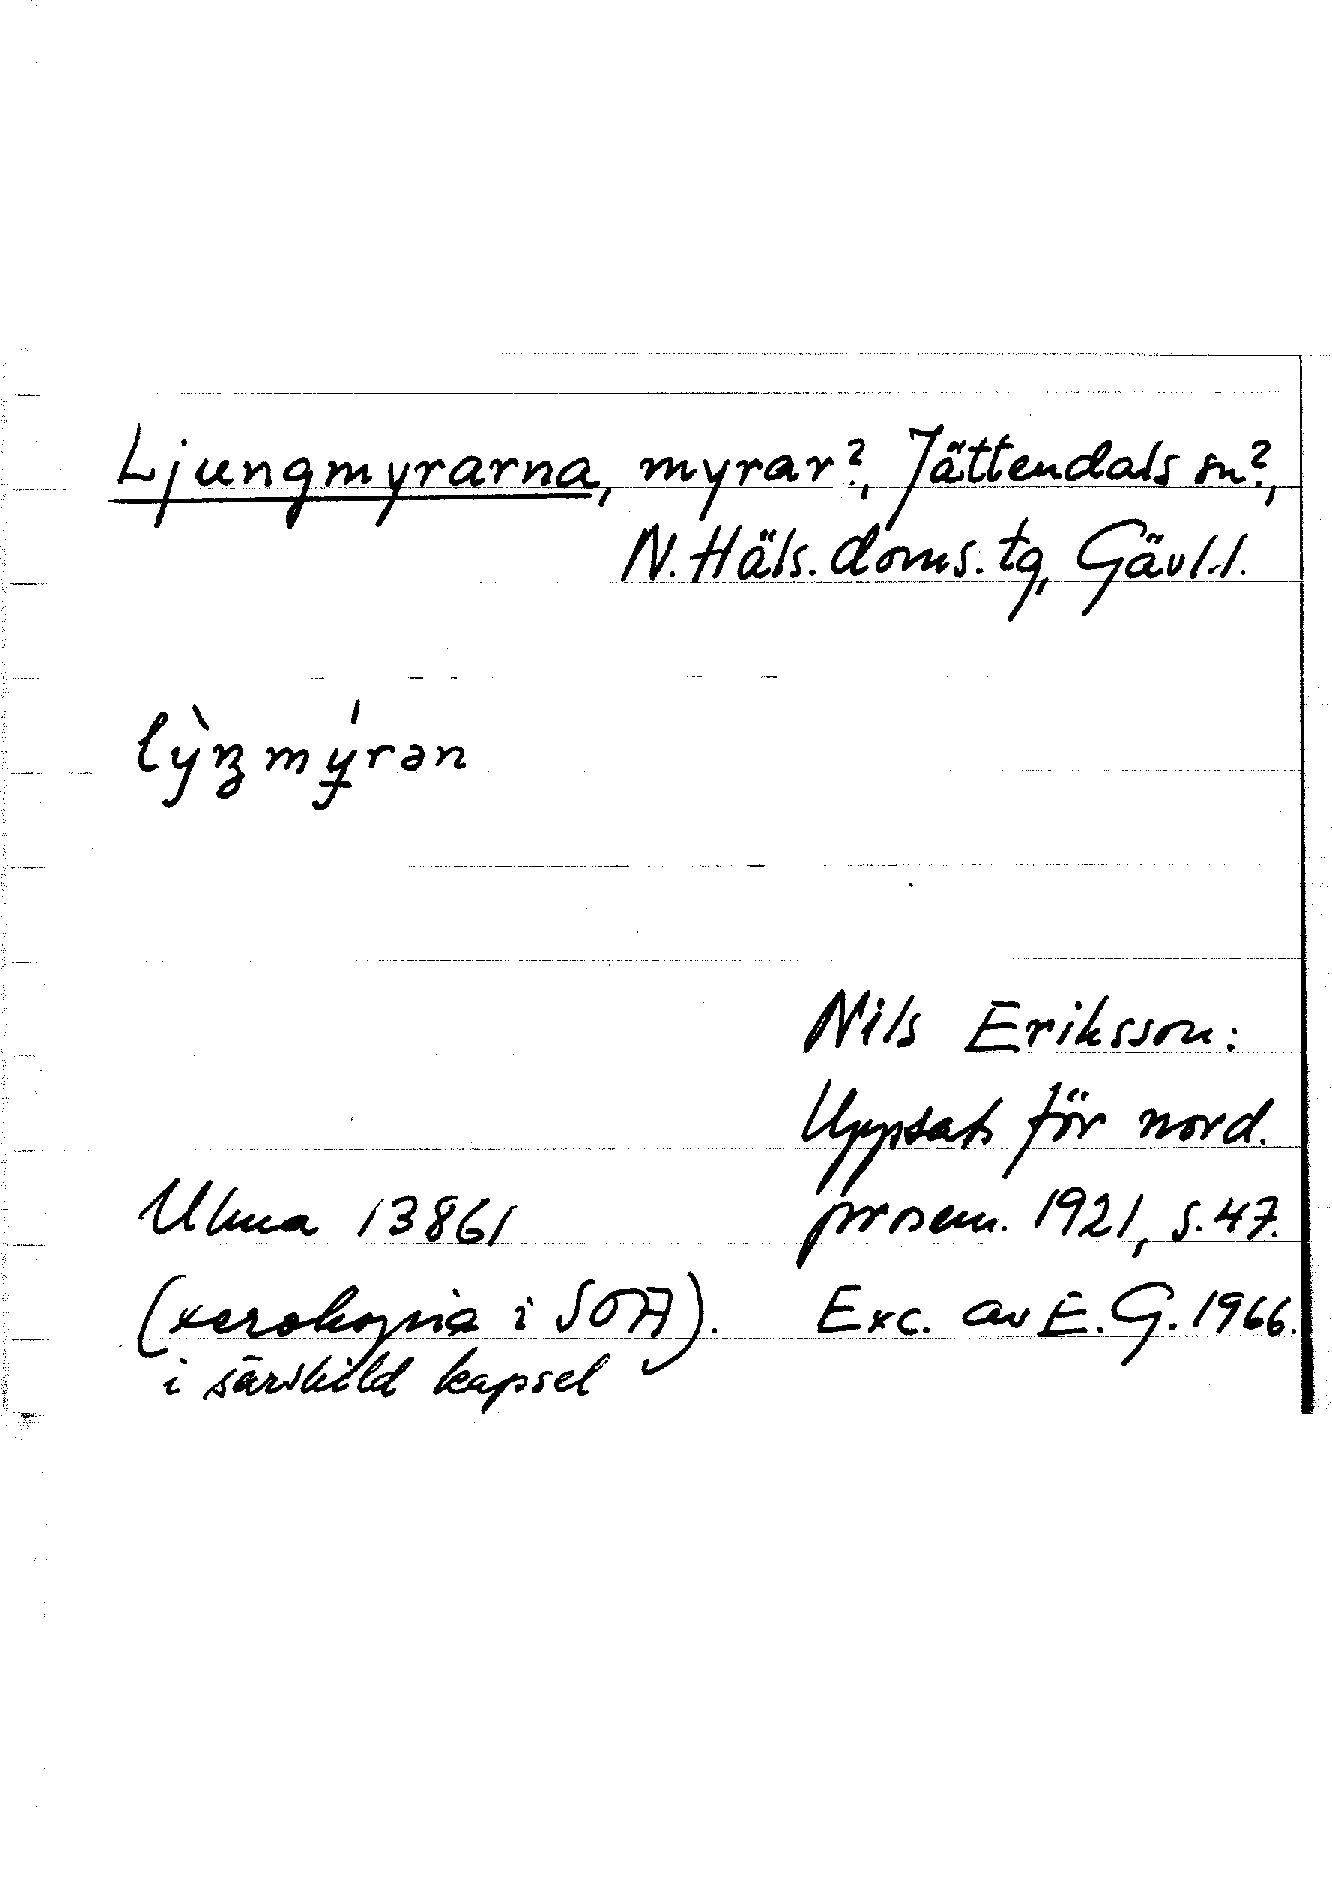 Ljungmyrarna, myrar?, Jättendals sn?,
N. Häls. doms. tg, Gävl.l.
lỳŋmý̵rən
Nils Eriksson:
Uppsats för nord.
prosem. 1921, s. 47.
Ulma 13861
(xerokopia i SOA).
Exc. av E. G. 1966.
i särskild kapsel